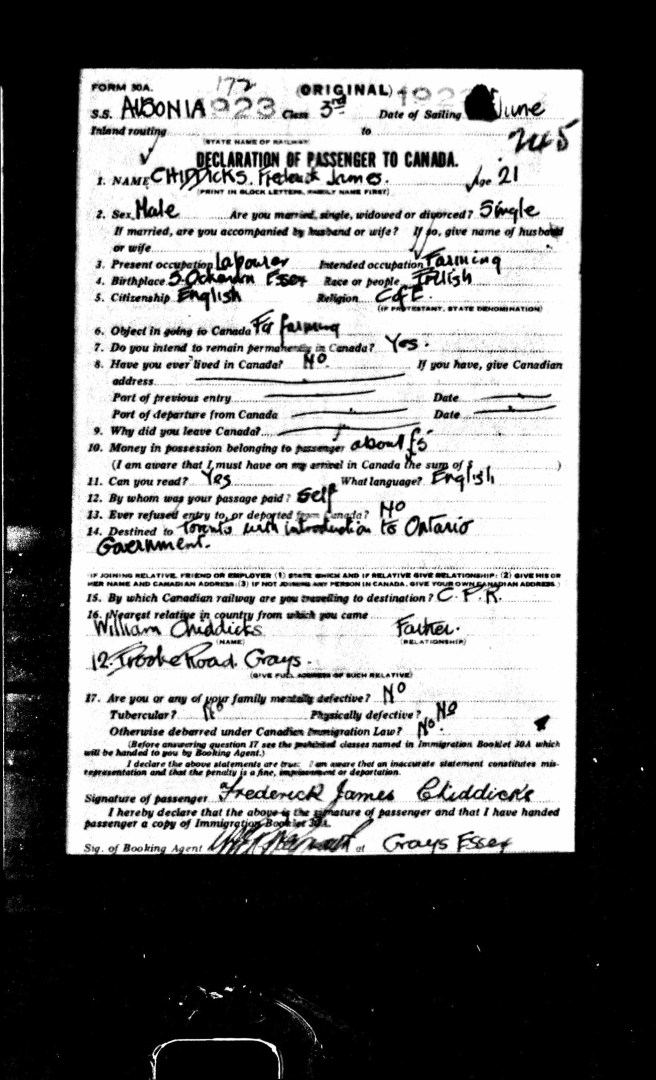 FORM 30A. 172 (ORIGINAL)
S.S. AUSONIA 923 Class 3rd 192 Date of Sailing June
Inland routing to 245
(STATE NAME OF RAILWAY)
DECLARATION OF PASSENGER TO CANADA.
1. NAME CHIDDICKS. Frederick James. Age 21
(PRINT IN BLOCK LETTERS, FAMILY NAME FIRST)
2. Sex Male Are you married, single, widowed or divorced? Single
If married, are you accompanied by husband or wife? If so, give name of husband
or wife
3. Present occupation Labourer Intended occupation Farming
4. Birthplace S. Ockendon Essex Race or people
5. Citizenship English Religion C of E.
(IF PROTESTANT, STATE DENOMINATION)
6. Object in going to Canada For farming
7. Do you intend to remain permanently in Canada? Yes.
8. Have you ever lived in Canada? No. If you have, give Canadian
address
Port of previous entry Date
Port of departure from Canada Date
9. Why did you leave Canada?
10. Money in possession belonging to passenger about £5
(I am aware that I must have on my arrival in Canada the sum of $ )
11. Can you read? Yes What language? English
12. By whom was your passage paid? Self
13. Ever refused entry to, or deported from Canada? NO
14. Destined to Toronto with introduction to Ontario
Government.
IF JOINING RELATIVE, FRIEND OR EMPLOYER (1) STATE WHICH AND IF RELATIVE GIVE RELATIONSHIP: (2) GIVE HIS OR
HER NAME AND CANADIAN ADDRESS: (3) IF NOT JOINING ANY PERSON IN CANADA, GIVE YOUR OWN CANADIAN ADDRESS.
15. By which Canadian railway are you travelling to destination? C.P.R.
16. Nearest relative in country from which you came
William Chiddicks Father.
(NAME) (RELATIONSHIP)
12. Road. Grays.
(GIVE FULL ADDRESS OF SUCH RELATIVE)
17. Are you or any of your family mentally defective? No
Tubercular? No Physically defective? No
Otherwise debarred under Canadian Immigration Law? No.
(Before answering question 17 see the prohibited classes named in Immigration Booklet 30A which
will be handed to you by Booking Agent.)
I declare the above statements are true: I am aware that an inaccurate statement constitutes mis-
representation and that the penalty is a fine, imprisonment or deportation.
Signature of passenger Frederick James Chiddicks
I hereby declare that the above is the signature of passenger and that I have handed
passenger a copy of Immigration Booklet 30A.
Sig. of Booking Agent at Grays Essex